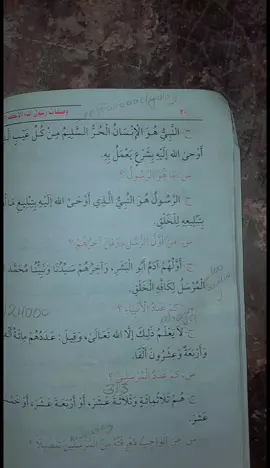 ٢٠
وصفات رسول الله
ج النَّبِيُّ هُوَ الْإِنْسَانُ الْحُرُّ السَّلِيمُ مِنْ كُلِّ عَيْبٍ
أَوْحَىٰ الله إِلَيْهِ بِشَرْعٍ يَعْمَلُ بِهِ.
س مَا هُوَ الرَّسُولُ؟
ج الرَّسُولُ هُوَ النَّبِيُّ الَّذِي أَوْحَىٰ الله إِلَيْهِ بِتَبْلِيغِ
بِتَبْلِيغِهِ لِلْخَلْقِ.
س مَنْ أَوَّلُ الرُّسُلِ وَمَنْ آخِرُهُمْ؟
ج أَوَّلُهُمْ آدَمُ أَبُو الْبَشَرِ، وَآخِرُهُمْ سَيِّدُنَا وَنَبِيُّنَا مُحَمَّد
الْمُرْسَلُ لِكَافَّةِ الْخَلْقِ.
س كَمْ عَدَدُ الْأَنْبِيَاءِ؟
124000
ج لَا يَعْلَمُ ذَلِكَ إِلَّا الله تَعَالَىٰ، وَقِيلَ: عَدَدُهُمْ مِائَةُ
وَأَرْبَعَةٌ وَعِشْرُونَ أَلْفًا.
س كَمْ عَدَدُ الْمُرْسَلِينَ؟
313
ج هُمْ ثَلَاثُمِائَةٍ وَثَلَاثَةَ عَشَرَ، أَوْ أَرْبَعَةَ عَشَرَ، أَوْ
عَشَرَ.